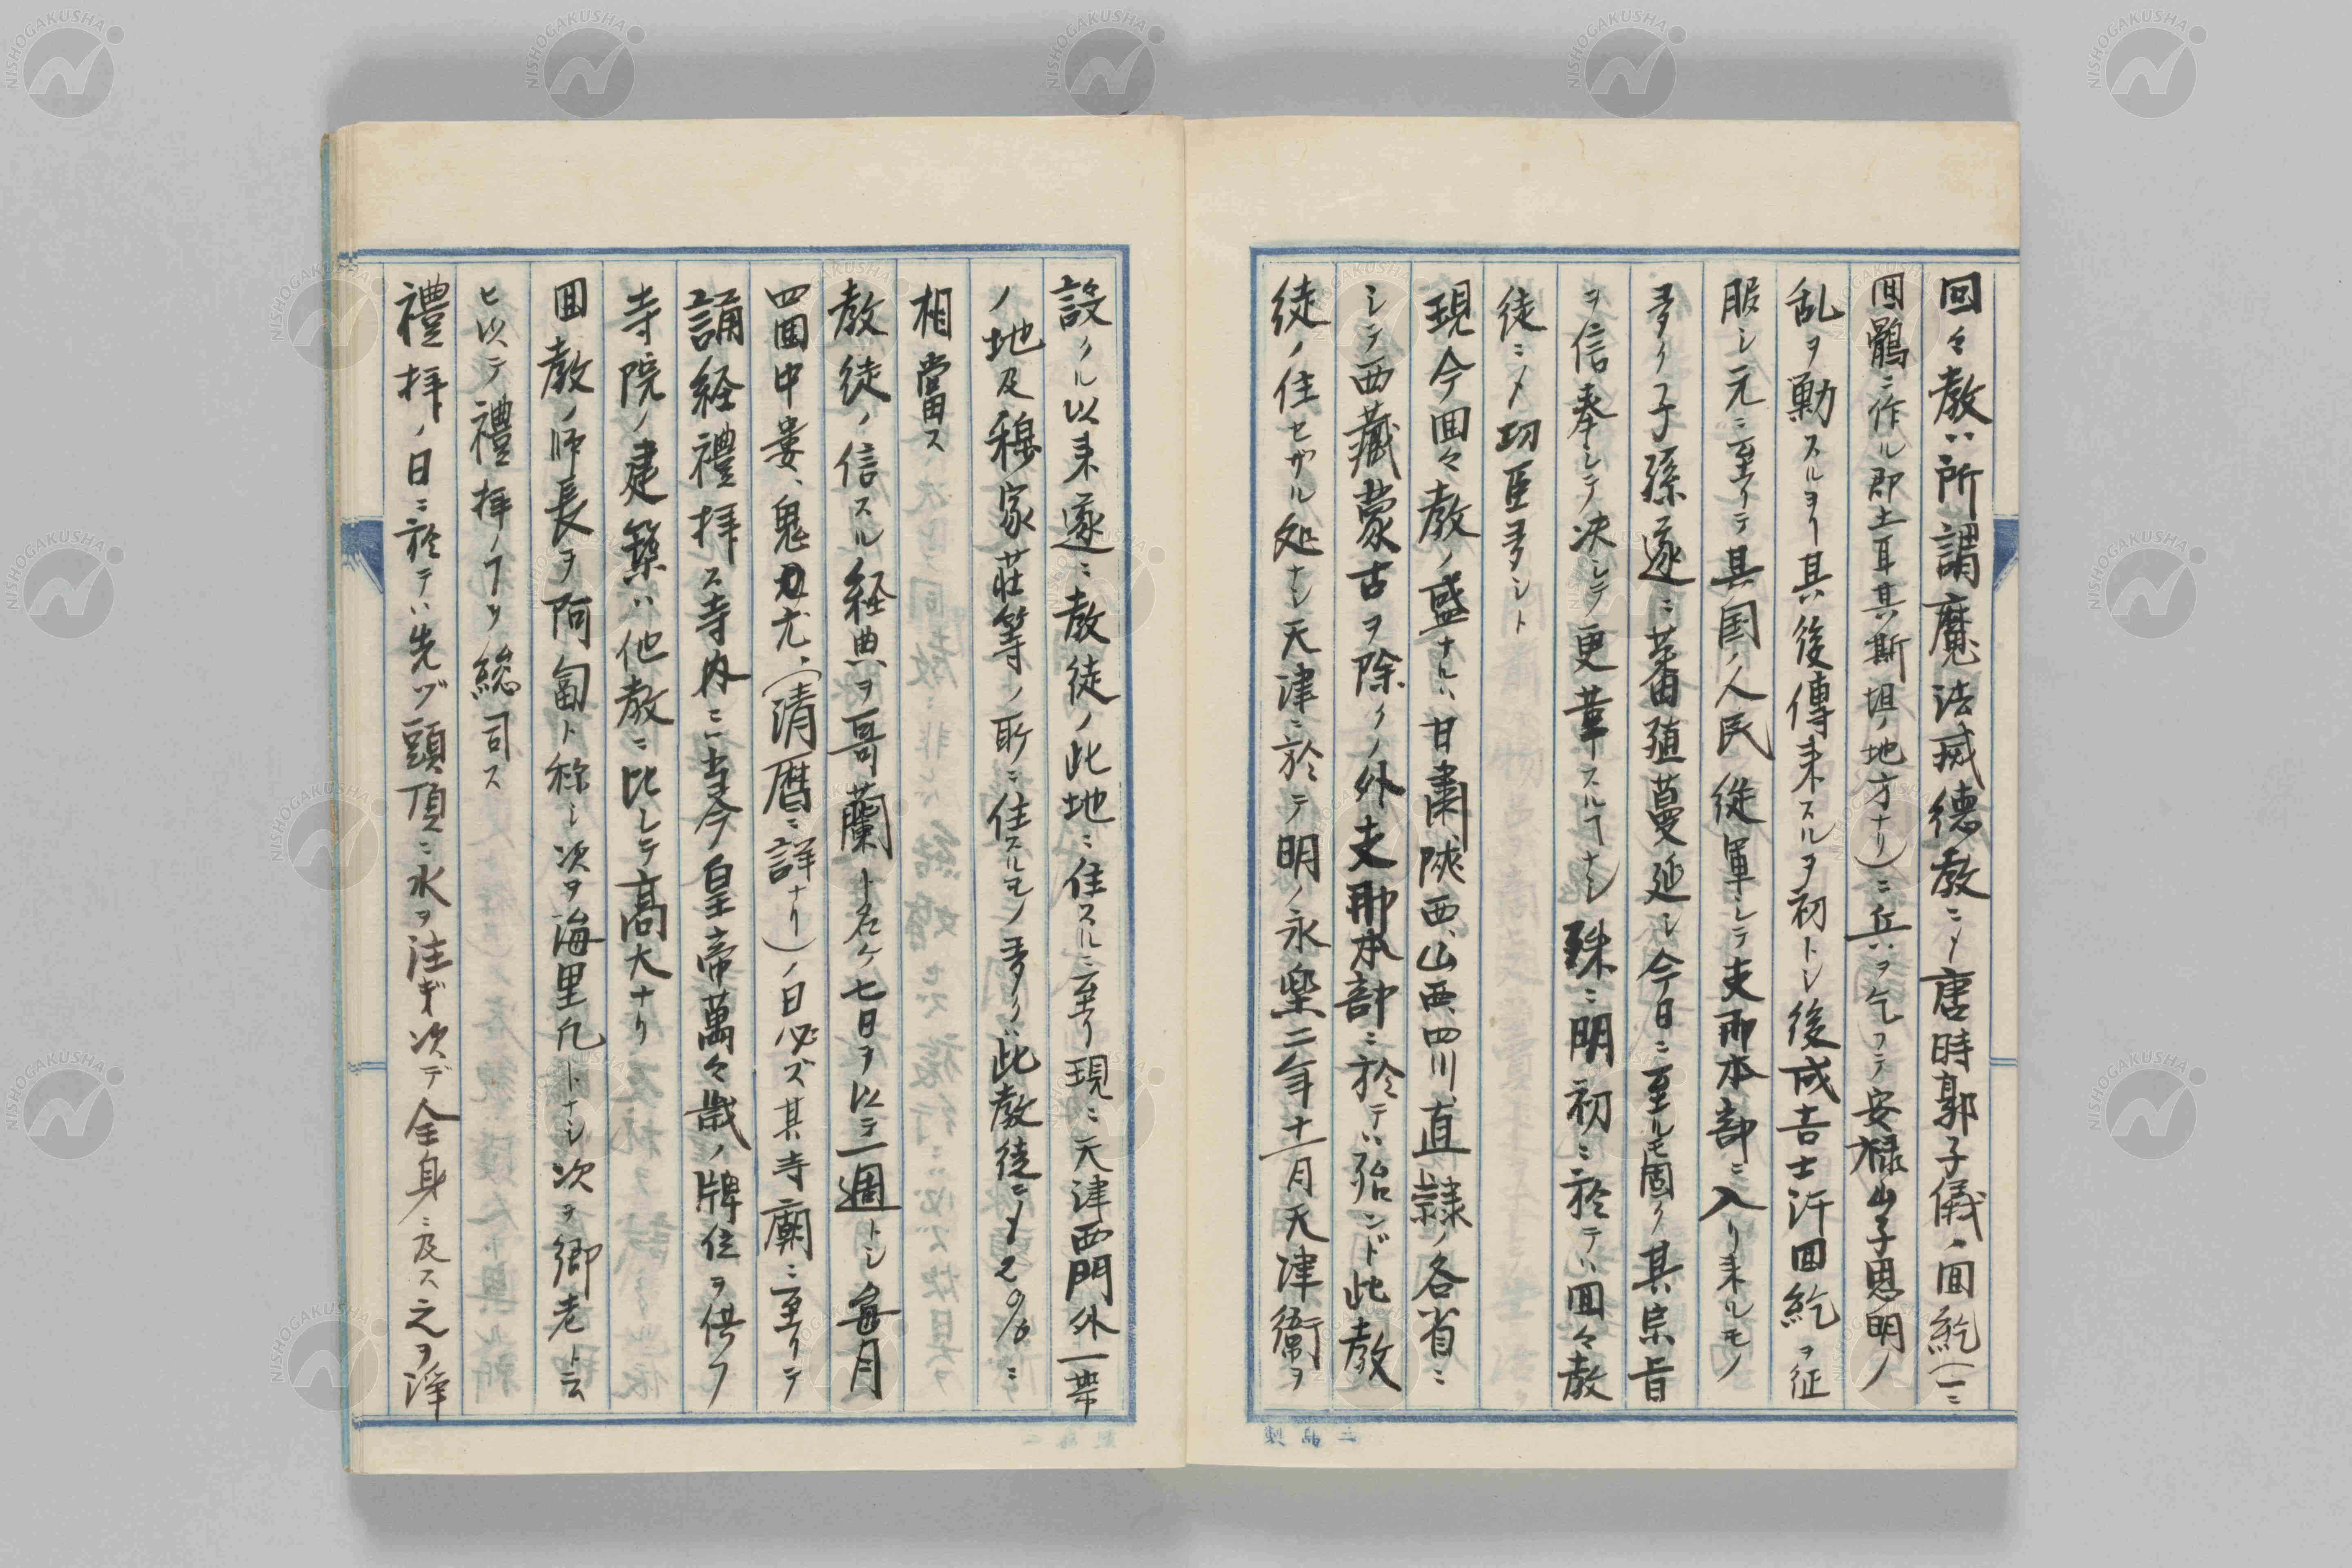 回々教ハ所謂魔法威徳教ニメ唐時郭子儀、回紇(一ニ
回鶻ニ作ル即土耳其斯坦ノ地方ナリ)ニ兵ヲ乞フテ安禄山子思明ノ
乱ヲ勦スルヨリ其後傳来スルヲ初トシ後成吉士汗回紇ヲ征
服シ元ニ至リテ其国ノ人民従軍シテ支那本部ニ入リ来ルモノ
多ク子孫遂ニ蕃殖蔓延シ今日ニ至ルモ固ク其宗旨
ヲ信奉シテ決シテ更革スルヿナシ殊ニ明初ニ於テハ回々教
徒ニメ功臣多シト
現今回々教ノ盛ナルハ甘粛陜西、山西、四川、直隷ノ各省ニ
シテ西藏蒙古ヲ除クノ外支那本部ニ於テハ殆ンド此教
徒ノ住セザル処ナシ天津ニ於テ明ノ永楽二年十一月天津衛ヲ
設クル以来遂ニ教徒ノ此地ニ住スルニ至リ現ニ天津西門外一帯
ノ地及穆家荘等ノ所ニ住スルモノ多クハ此教徒ニメ20%ニ
相當ス
教徒ノ信スル経典ヲ哥蘭ト名ケ七日ヲ以テ一週トシ毎月
四回中婁、鬼、亢、(清暦ニ詳ナリ)ノ日必ズ其寺廟ニ至リテ
誦経禮拝ス寺内ニハ当今皇帝萬々歳ノ牌位ヲ供フ
寺院ノ建築ハ他教ニ比シテ高大ナリ
回教ノ師長ヲ阿匐ト称シ次ヲ海里凡トナシ次ヲ郷老ト云
ヒ以テ禮拝ノヿヲ総司ス
禮拝ノ日ニ於テハ先ヅ頭頂ニ水ヲ注ギ次デ全身ニ及ス之ヲ浄
NISHOGAKUSHA